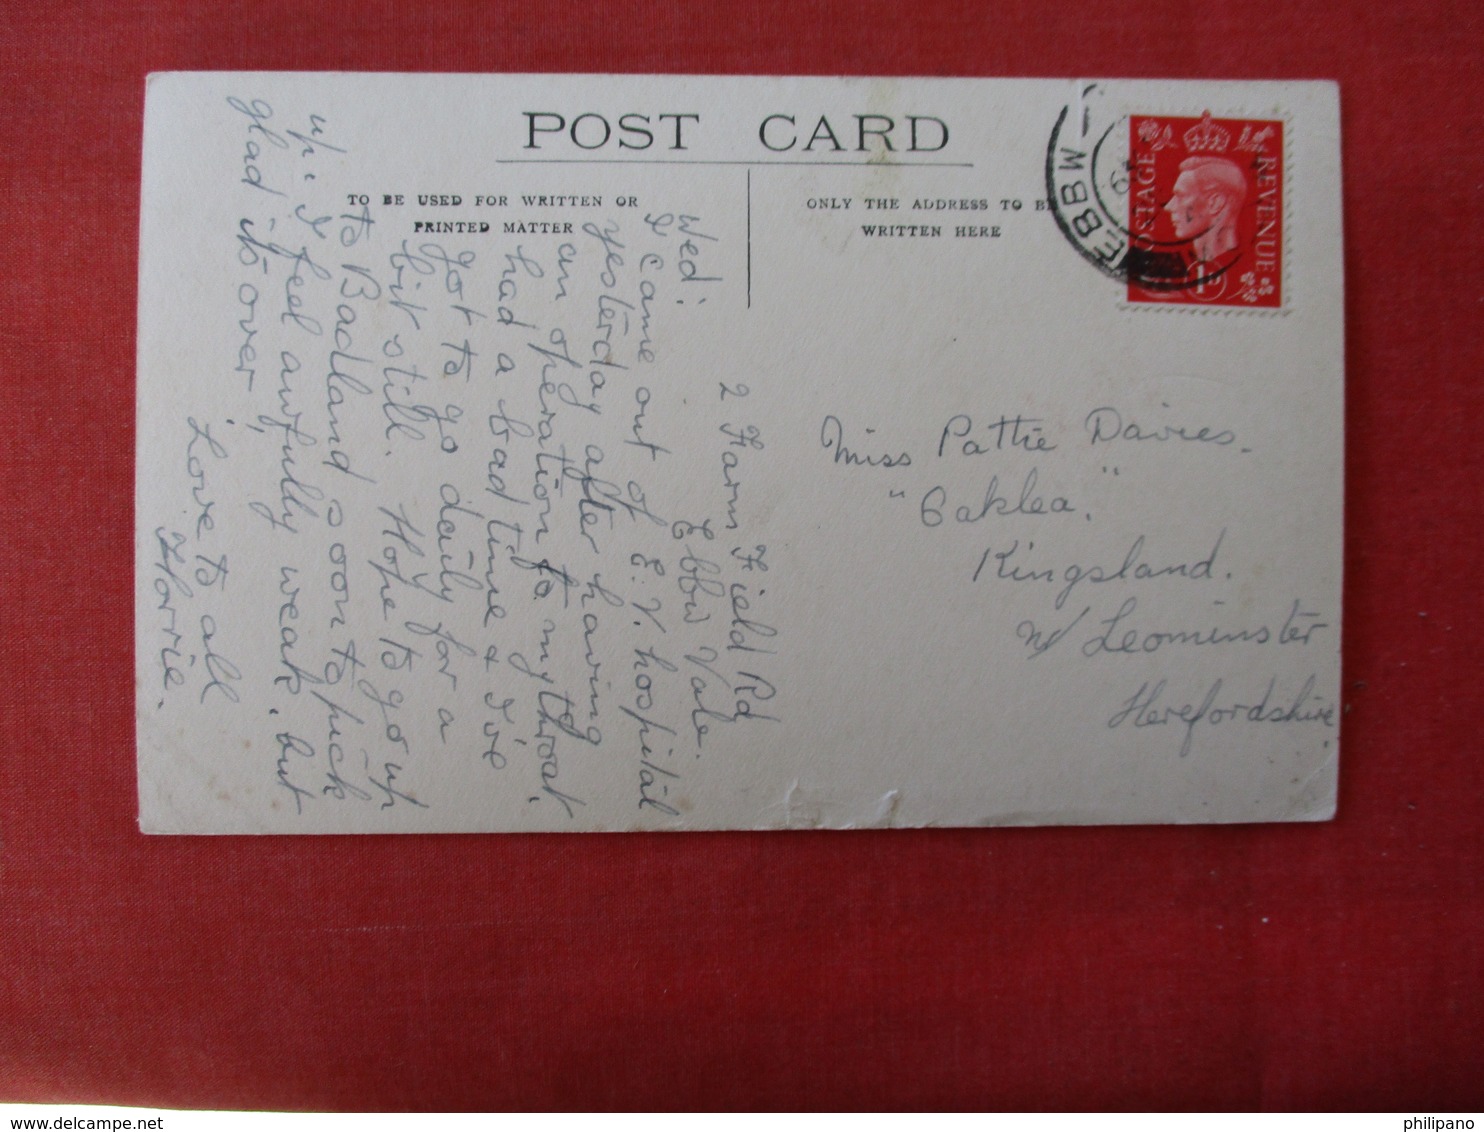 POST CARD
TO BE USED FOR WRITTEN OR
PRINTED MATTER
ONLY THE ADDRESS TO BE
WRITTEN HERE
POSTAGE
REVENUE
1D
EBBW
2 Farm Field Rd
Ebbw Vale.
Wed:
I came out of E.V. hospital
yesterday after having
an operation to my throat,
had a bad time & I've
got to go daily for a
bit still. Hope to go up
to Badland soon to pick
up. I feel awfully weak, but
glad it's over,
Love to all
Florrie.
Miss Pattie Davies.
"Oaklea."
Kingsland.
Nr Leominster
Herefordshire.
delcampe.net
philipano